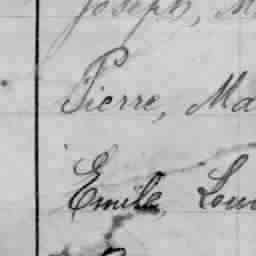 Joseph, M
Pierre, Ma
Emile, Lou